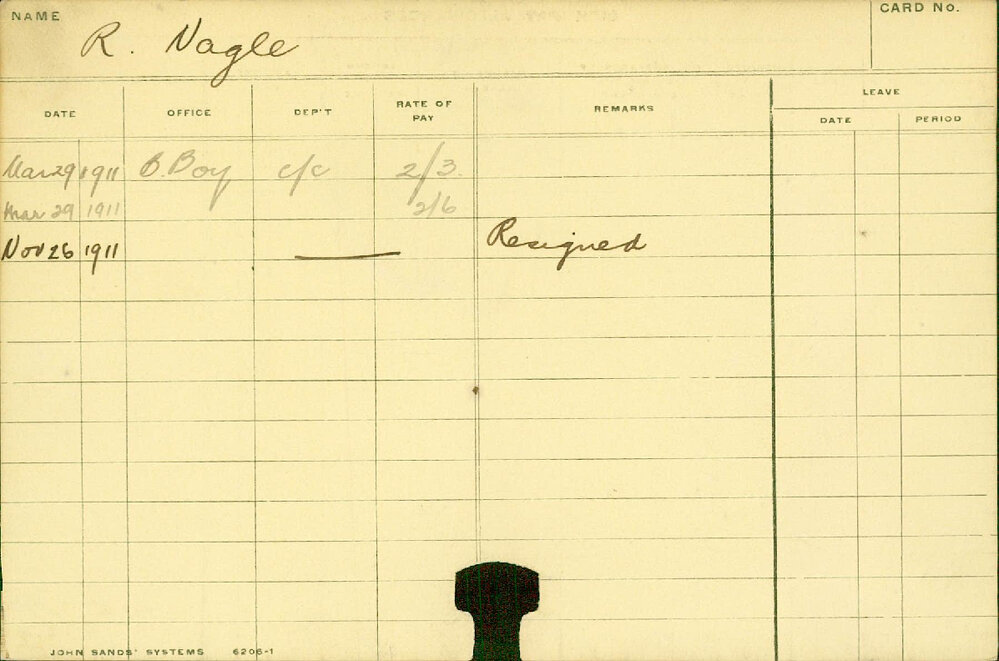 NAME R. Nagle CARD No.
DATE OFFICE DEP'T RATE OF PAY REMARKS LEAVE
DATE PERIOD
Mar 29 1911 O. Boy c/c 2/3
Mar 29 1911 2/6
Nov 26 1911 — Resigned
JOHN SANDS' SYSTEMS 6206-1